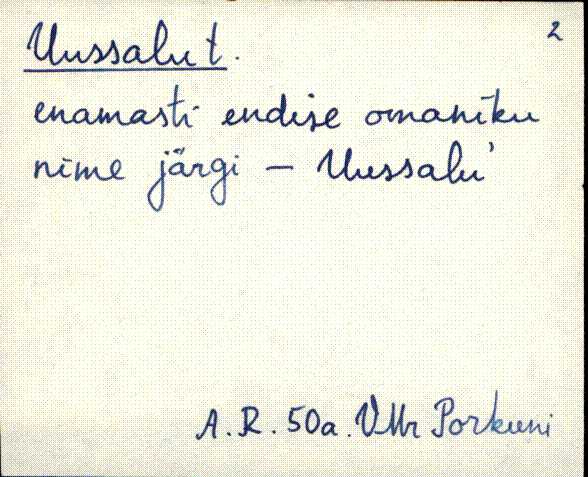 2
Uussalu t.
enamasti endise omaniku
nime järgi – Uussalu'
A. R. 50a. VMr Porkuni